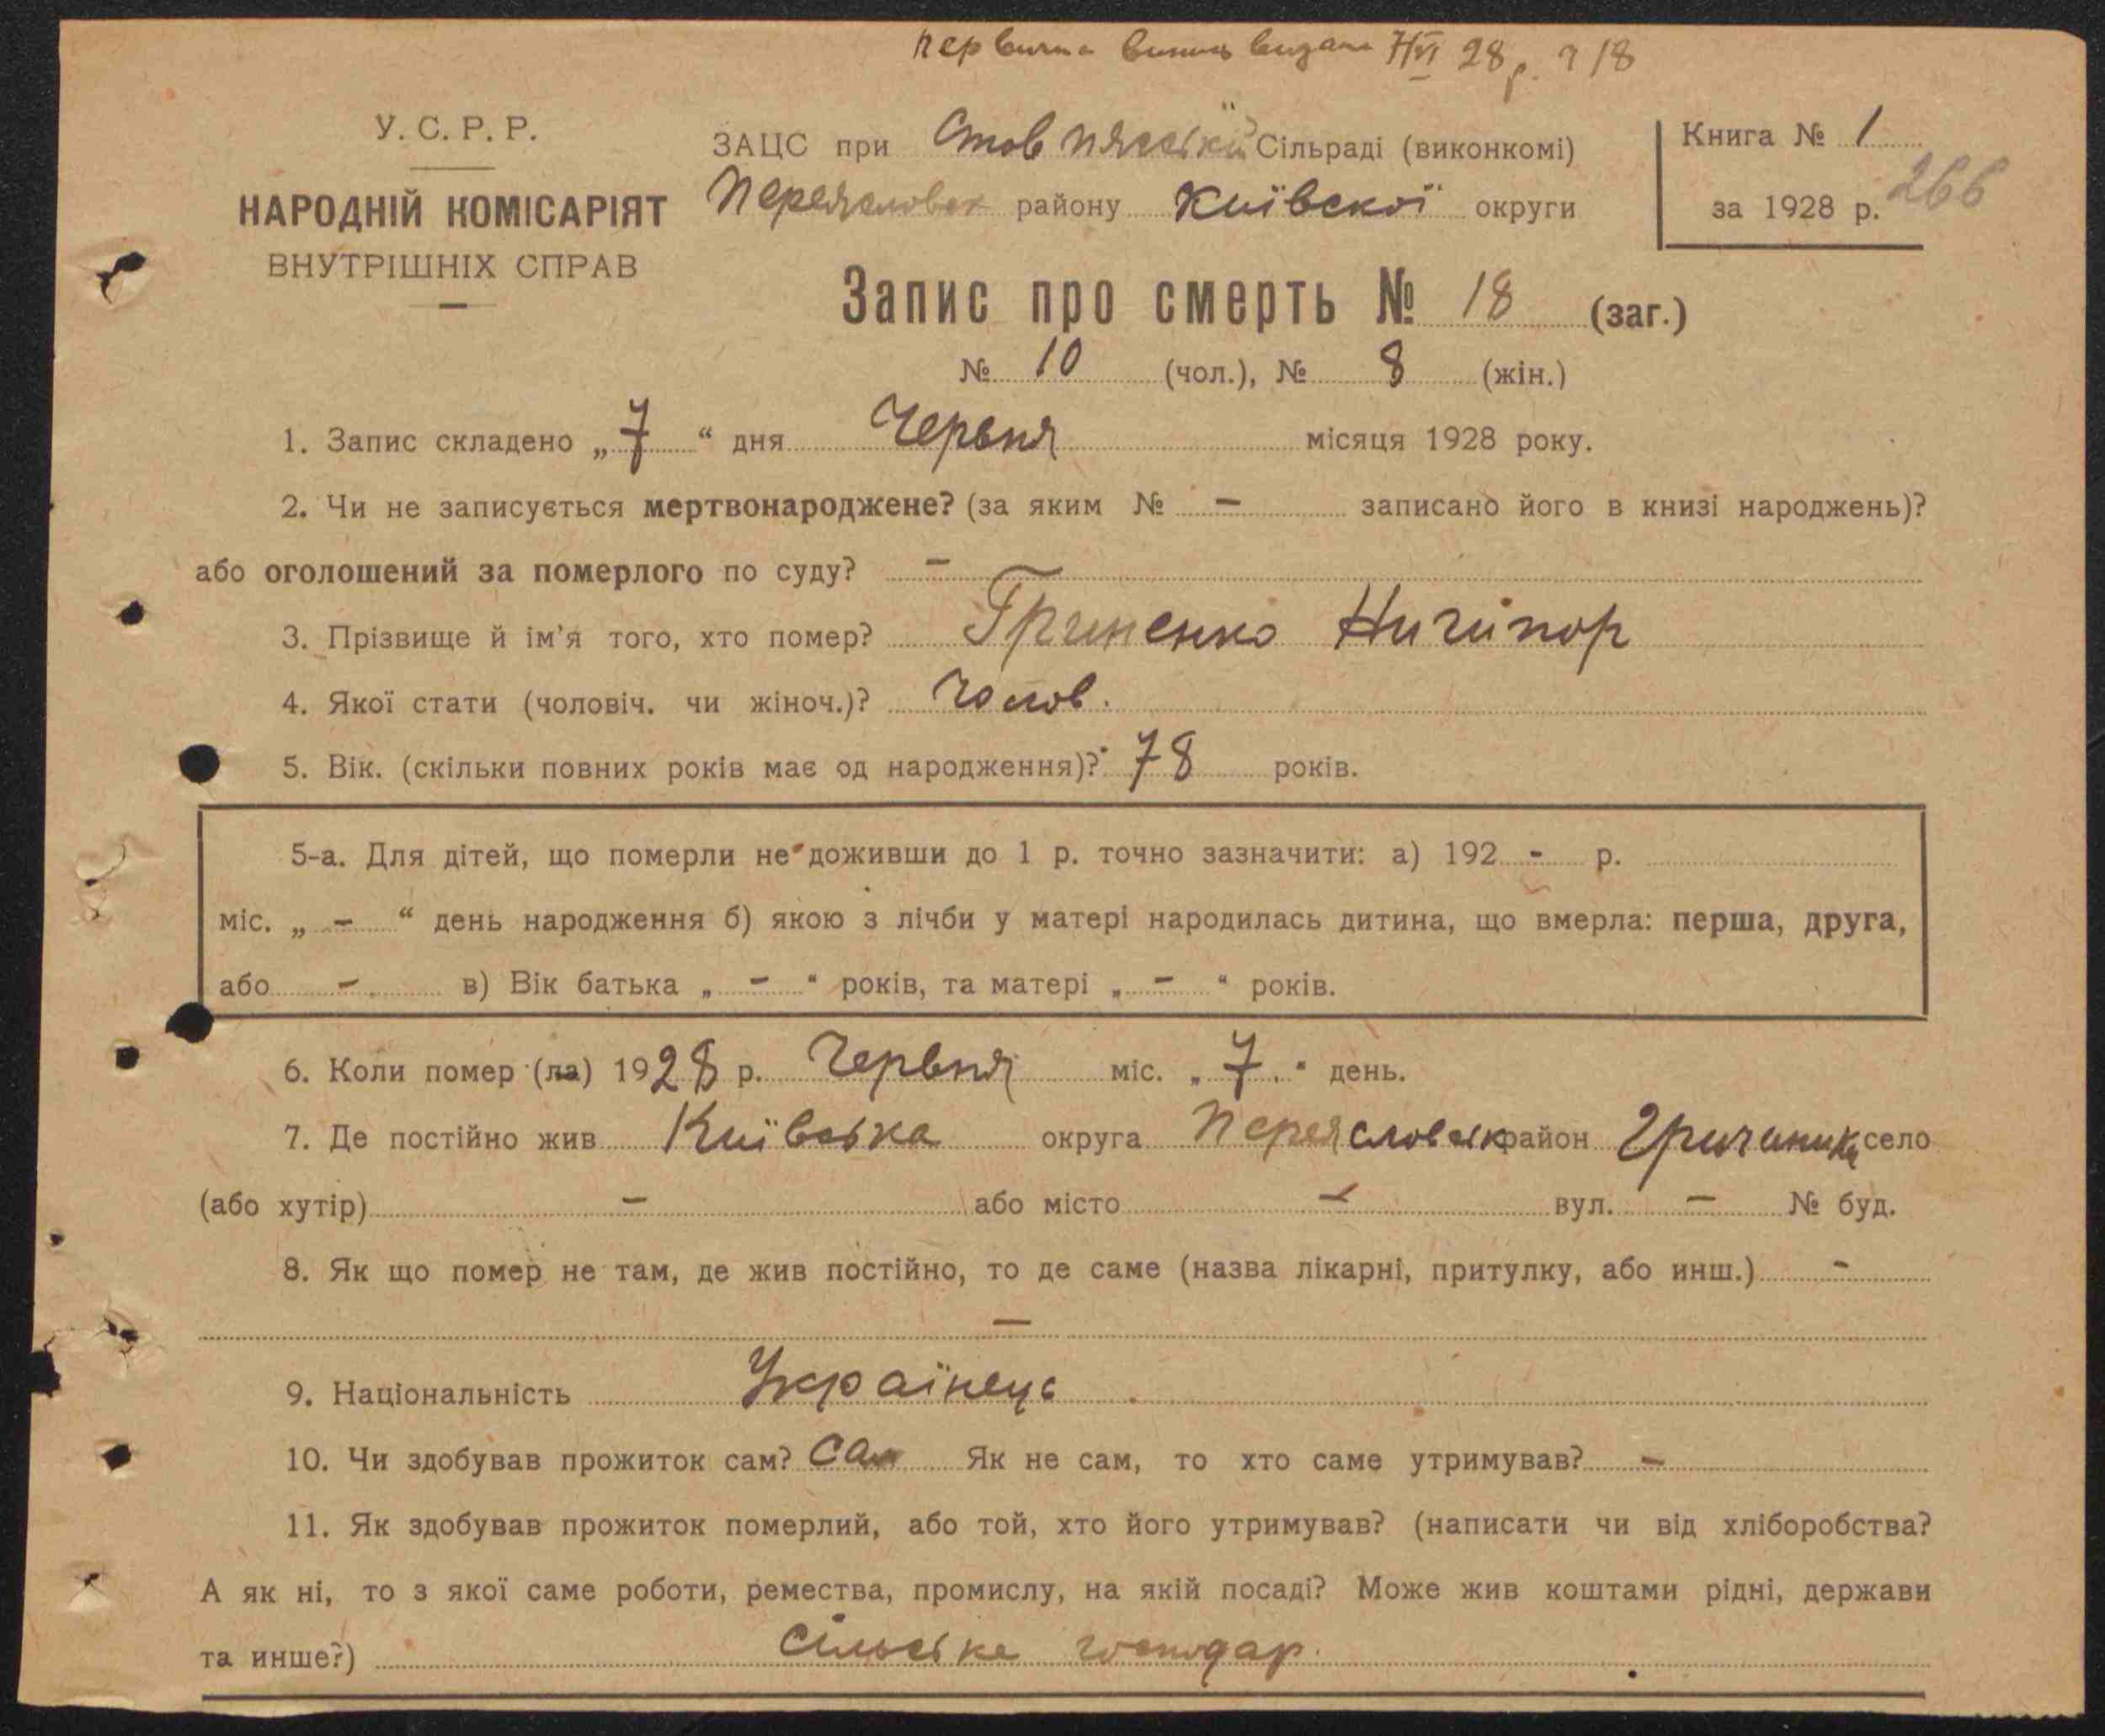 первична випись видана 7/VI 28 р. ч 18
У. С. Р. Р.
НАРОДНІЙ КОМІСАРІЯТ
ВНУТРІШНІХ СПРАВ
ЗАЦС при Стовпяській Сільраді (виконкомі)
Переяславск району Київскої округи
Книга № 1
за 1928 р. 266
Запис про смерть № 18 (заг.)
№ 10 (чол.), № 8 (жін.)
1. Запис складено „7“ дня Червня місяця 1928 року.
2. Чи не записується мертвонароджене? (за яким № – записано його в книзі народжень)?
або оголошений за померлого по суду? –
3. Прізвище й ім'я того, хто помер? Гриненко Ничипор
4. Якої стати (чоловіч. чи жіноч.)? Чолов.
5. Вік. (скільки повних років має од народження)? 78 років.
5-а. Для дітей, що померли не доживши до 1 р. точно зазначити: а) 192 - р.
міс. „ – “ день народження б) якою з лічби у матері народилась дитина, що вмерла: перша, друга,
або – в) Вік батька „ – “ років, та матері „ – “ років.
6. Коли помер (ла) 1928 р. Червня міс. „7“ день.
7. Де постійно жив Київська округа Переяславськ район село
(або хутір) – або місто – вул. – № буд.
8. Як що помер не там, де жив постійно, то де саме (назва лікарні, притулку, або инш.) -
–
9. Національність Українець
10. Чи здобував прожиток сам? Сам Як не сам, то хто саме утримував? –
11. Як здобував прожиток померлий, або той, хто його утримував? (написати чи від хліборобства?
А як ні, то з якої саме роботи, ремества, промислу, на якій посаді? Може жив коштами рідні, держави
та инше?) Сільське господар.